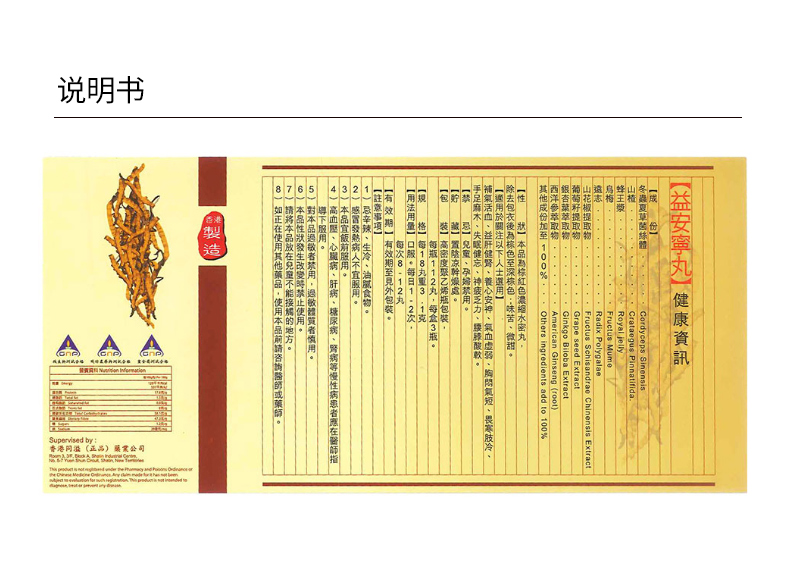 说明书
【益安寧丸】健康資訊
【成　份】
冬蟲夏草菌絲體 Cordyceps Sinensis
山楂 Crataegus Pinnatifida.
蜂王漿 Royal jelly
烏梅 Fructus Mume
遠志 Radix Polygalae
山花椒提取物 Fructus Schisandrae Chinensis Extract
葡萄籽提取物 Grape seed Extract
銀杏葉萃取物 Ginkgo Biloba Extract
西洋參萃取物 American Ginseng (root)
其他成份加至100% Others ingredients add to 100%
【性　狀】本品為棕紅色濃縮水密丸，
除去包衣後為棕色至深棕色；味苦、微甜。
【適用於關注以下人士選用】
補氣活血、益肝健腎、養心安神、氣血虛弱、胸悶氣短、畏寒肢冷、
手足麻木、失眠健忘、神疲乏力、腰膝酸軟。
【禁　忌】兒童、孕婦禁用。
【貯　藏】置陰涼幹燥處。
【包　裝】高密度聚乙烯瓶包裝，
每瓶112丸，每盒3瓶。
【規　格】每18丸重3.1克
【用法用量】口服。每日1-2次，
每次8-12丸
【有 效 期】有效期至見外包裝。
【註意事項】
1 忌辛辣、生冷、油膩食物。
2）感冒發熱病人不宜服用。
3）本品宜飯前服用。
4）高血壓、心臟病、肝病、糖尿病、腎病等慢性病患者應在醫師指
導下服用。
5）對本品過敏者禁用，過敏體質者慎用。
6）本品性狀發生改變時禁止使用。
7）請將本品放在兒童不能接觸的地方。
8）如正在使用其他藥品，使用本品前請咨詢醫師或藥師。
香港
製造
GMP GMP GMP
營養資料 Nutrition Information
Supervised by :
香港同溢（正品）藥業公司
Room 3, 3/F, Block A, Shatin Industrial Centre,
No. 5-7 Yuen Shun Circuit, Shatin, New Territories
This product is not registered under the Pharmacy and Poisons Ordinance or
the Chinese Medicine Ordinance. Any claim made for it has not been
subject to evaluation for such registration. This product is not intended to
diagnose, treat or prevent any disease.